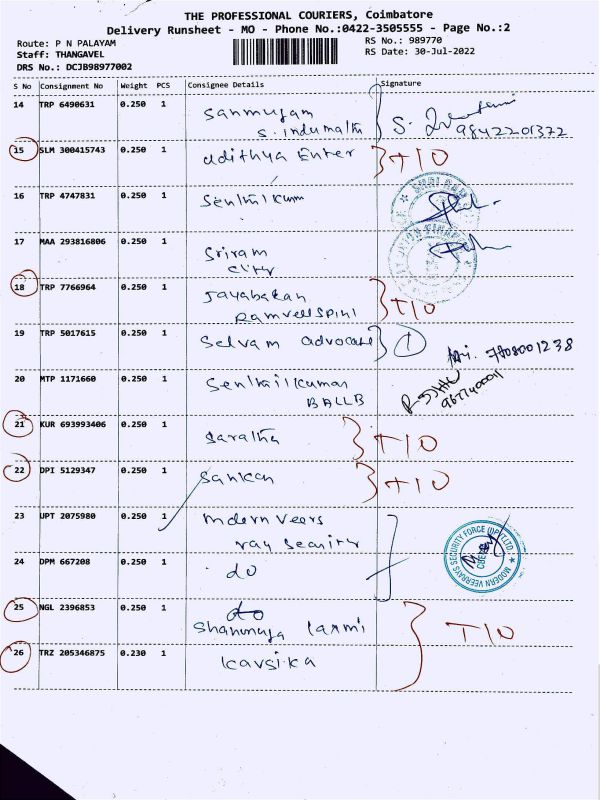 THE PROFESSIONAL COURIERS, Coimbatore
Delivery Runsheet - MO - Phone No.:0422-3505555 - Page No.:2
Route: P N PALAYAM
Staff: THANGAVEL
DRS No.: DCJB98977002
RS No.: 989770
RS Date: 30-Jul-2022
S No Consignment No Weight PCS Consignee Details Signature
14 TRP 6490631 0.250 1 Sanmugam
S. Indumathi S.
9842201372
15 SLM 300415743 0.250 1 adithya Enter T10
16 TRP 4747831 0.250 1 Senthil kumar
17 MAA 293816806 0.250 1 Sriram
city
18 TRP 7766964 0.250 1 Jayabakan
Ramvellspini T10
19 TRP 5017615 0.250 1 Selvam advocate 1
7808001238
20 MTP 1171660 0.250 1 Senthilkumar
BALLB
21 KUR 693993406 0.250 1 Saratha T10
22 DPI 5129347 0.250 1 Sankar T10
23 UPT 2075980 0.250 1 modern Veers
ray Security
MODERN VEERRAYS SECURITY FORCE (I) PVT LTD.
24 DPM 667208 0.250 1 do
25 NGL 2396853 0.250 1 do
Shanmuga laxmi T10
26 TRZ 205346875 0.230 1 kavsika